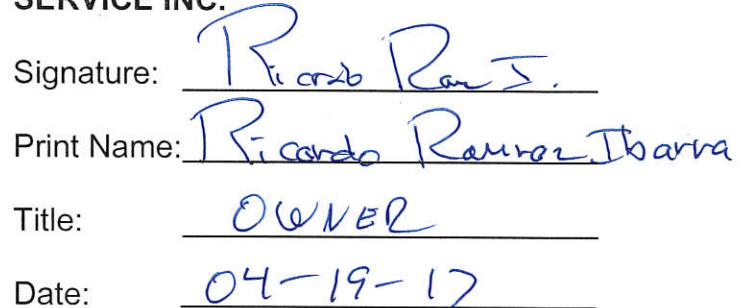 SERVICE INC.
Signature: Ricardo Ram I.
Print Name: Ricardo Ramirez Ibarra
Title: OWNER
Date: 04-19-17